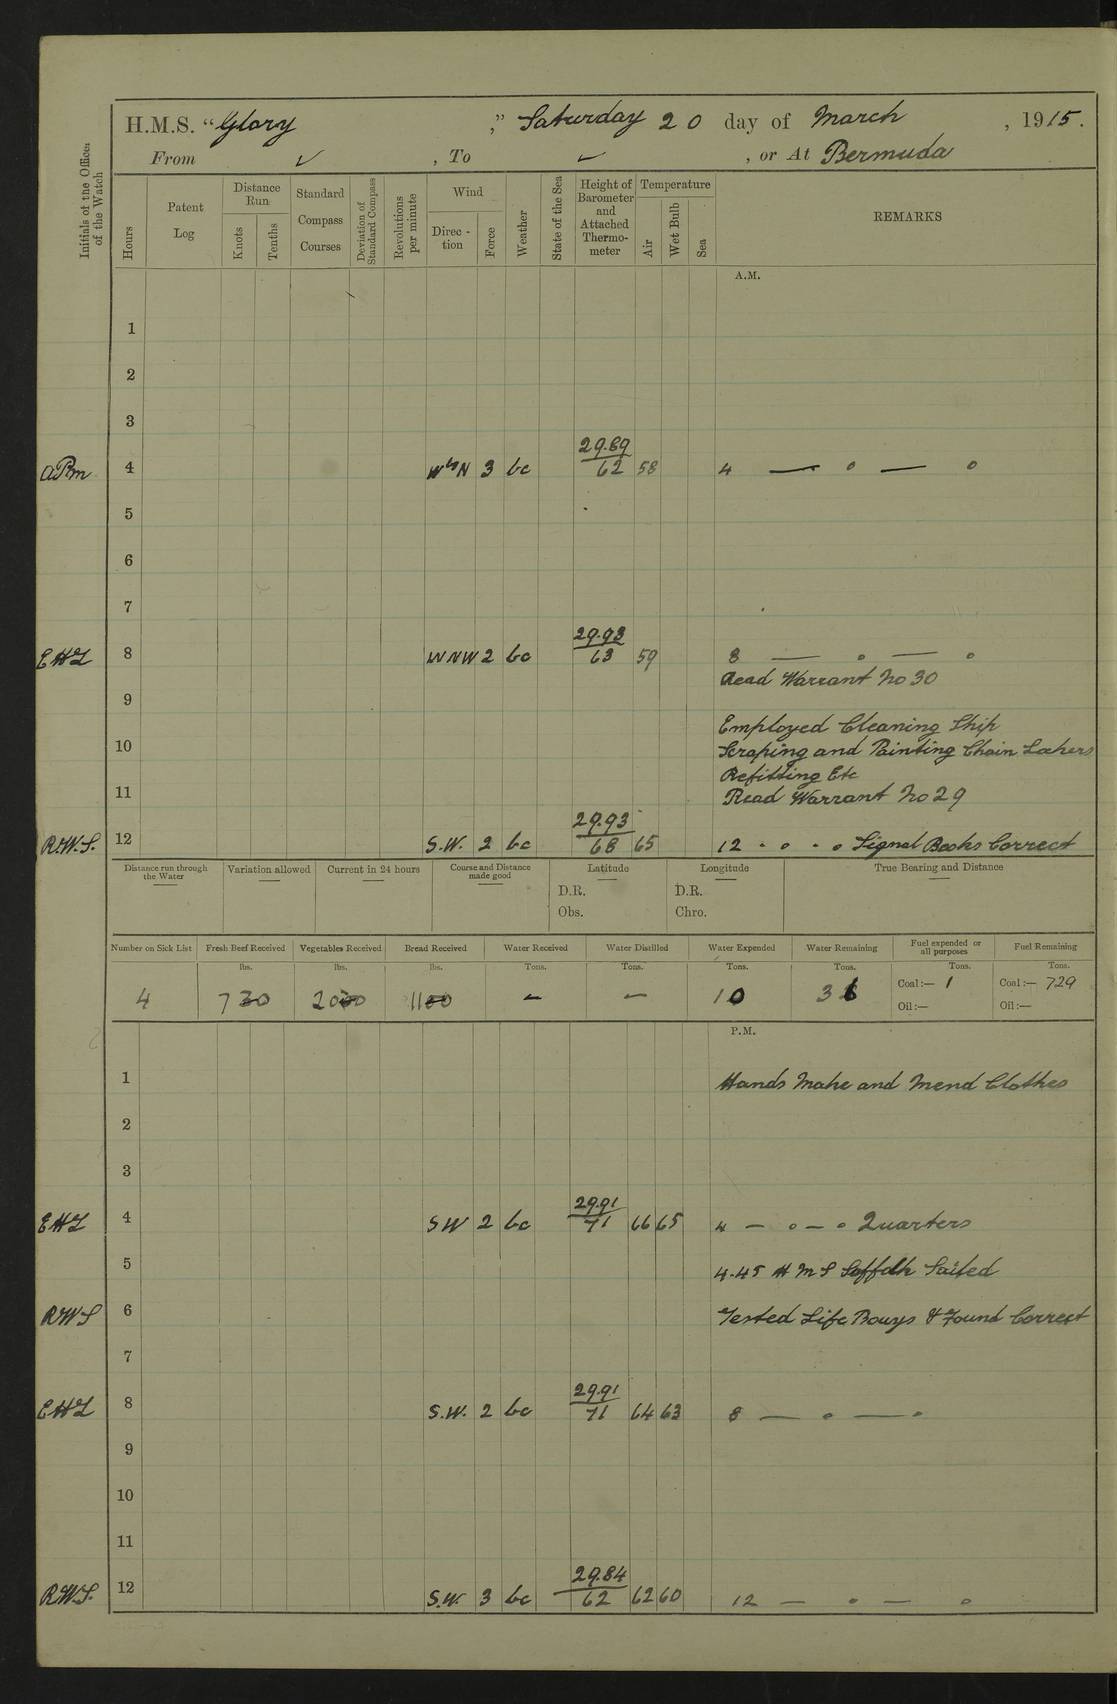 H.M.S. "Glory ," Saturday 20 day of March , 1915.
From ✓ , To ✓ , or At Bermuda
Initials of the Officer of the Watch
Hours
Patent Log
Distance Run
Knots
Tenths
Standard Compass Courses
Deviation of Standard Compass
Revolutions per minute
Wind
Direc-tion
Force
Weather
State of the Sea
Height of Barometer and Attached Thermo-meter
Temperature
Air
Wet Bulb
Sea
REMARKS
A.M.
1
2
3
29.89
4 WbN 3 bc 62 58 4 — o — o
5
6
7
29.93
EHL 8 WNW 2 bc 63 59 8 — o — o
Read Warrant No 30
9
Employed Cleaning Ship
10 Scraping and Painting Chain Lockers
Refitting Etc
11 Read Warrant No 29
29.93
R.W.S. 12 S.W. 2 bc 68 65 12 - o - o Signal Books Correct
Distance run through the Water
Variation allowed
Current in 24 hours
Course and Distance made good
Latitude
D.R.
Obs.
Longitude
D.R.
Chro.
True Bearing and Distance
Number on Sick List Fresh Beef Received Vegetables Received Bread Received Water Received Water Distilled Water Expended Water Remaining Fuel expended or all purposes Fuel Remaining
lbs. lbs. lbs. Tons. Tons. Tons. Tons. Tons. Tons.
4 730 2000 1100 — — 10 36 Coal:— 1 Coal:— 729
Oil:— Oil:—
P.M.
1 Hands Make and Mend Clothes
2
3
29.91
EHL 4 SW 2 bc 71 66 65 4 — o — o Quarters
5 4.45 HMS Suffolk Sailed
RWS 6 Tested Life Bouys & Found Correct
7
29.91
EHL 8 S.W. 2 bc 71 64 63 8 — o — o
9
10
11
29.84
RWS. 12 S.W. 3 bc 62 62 60 12 — o — o